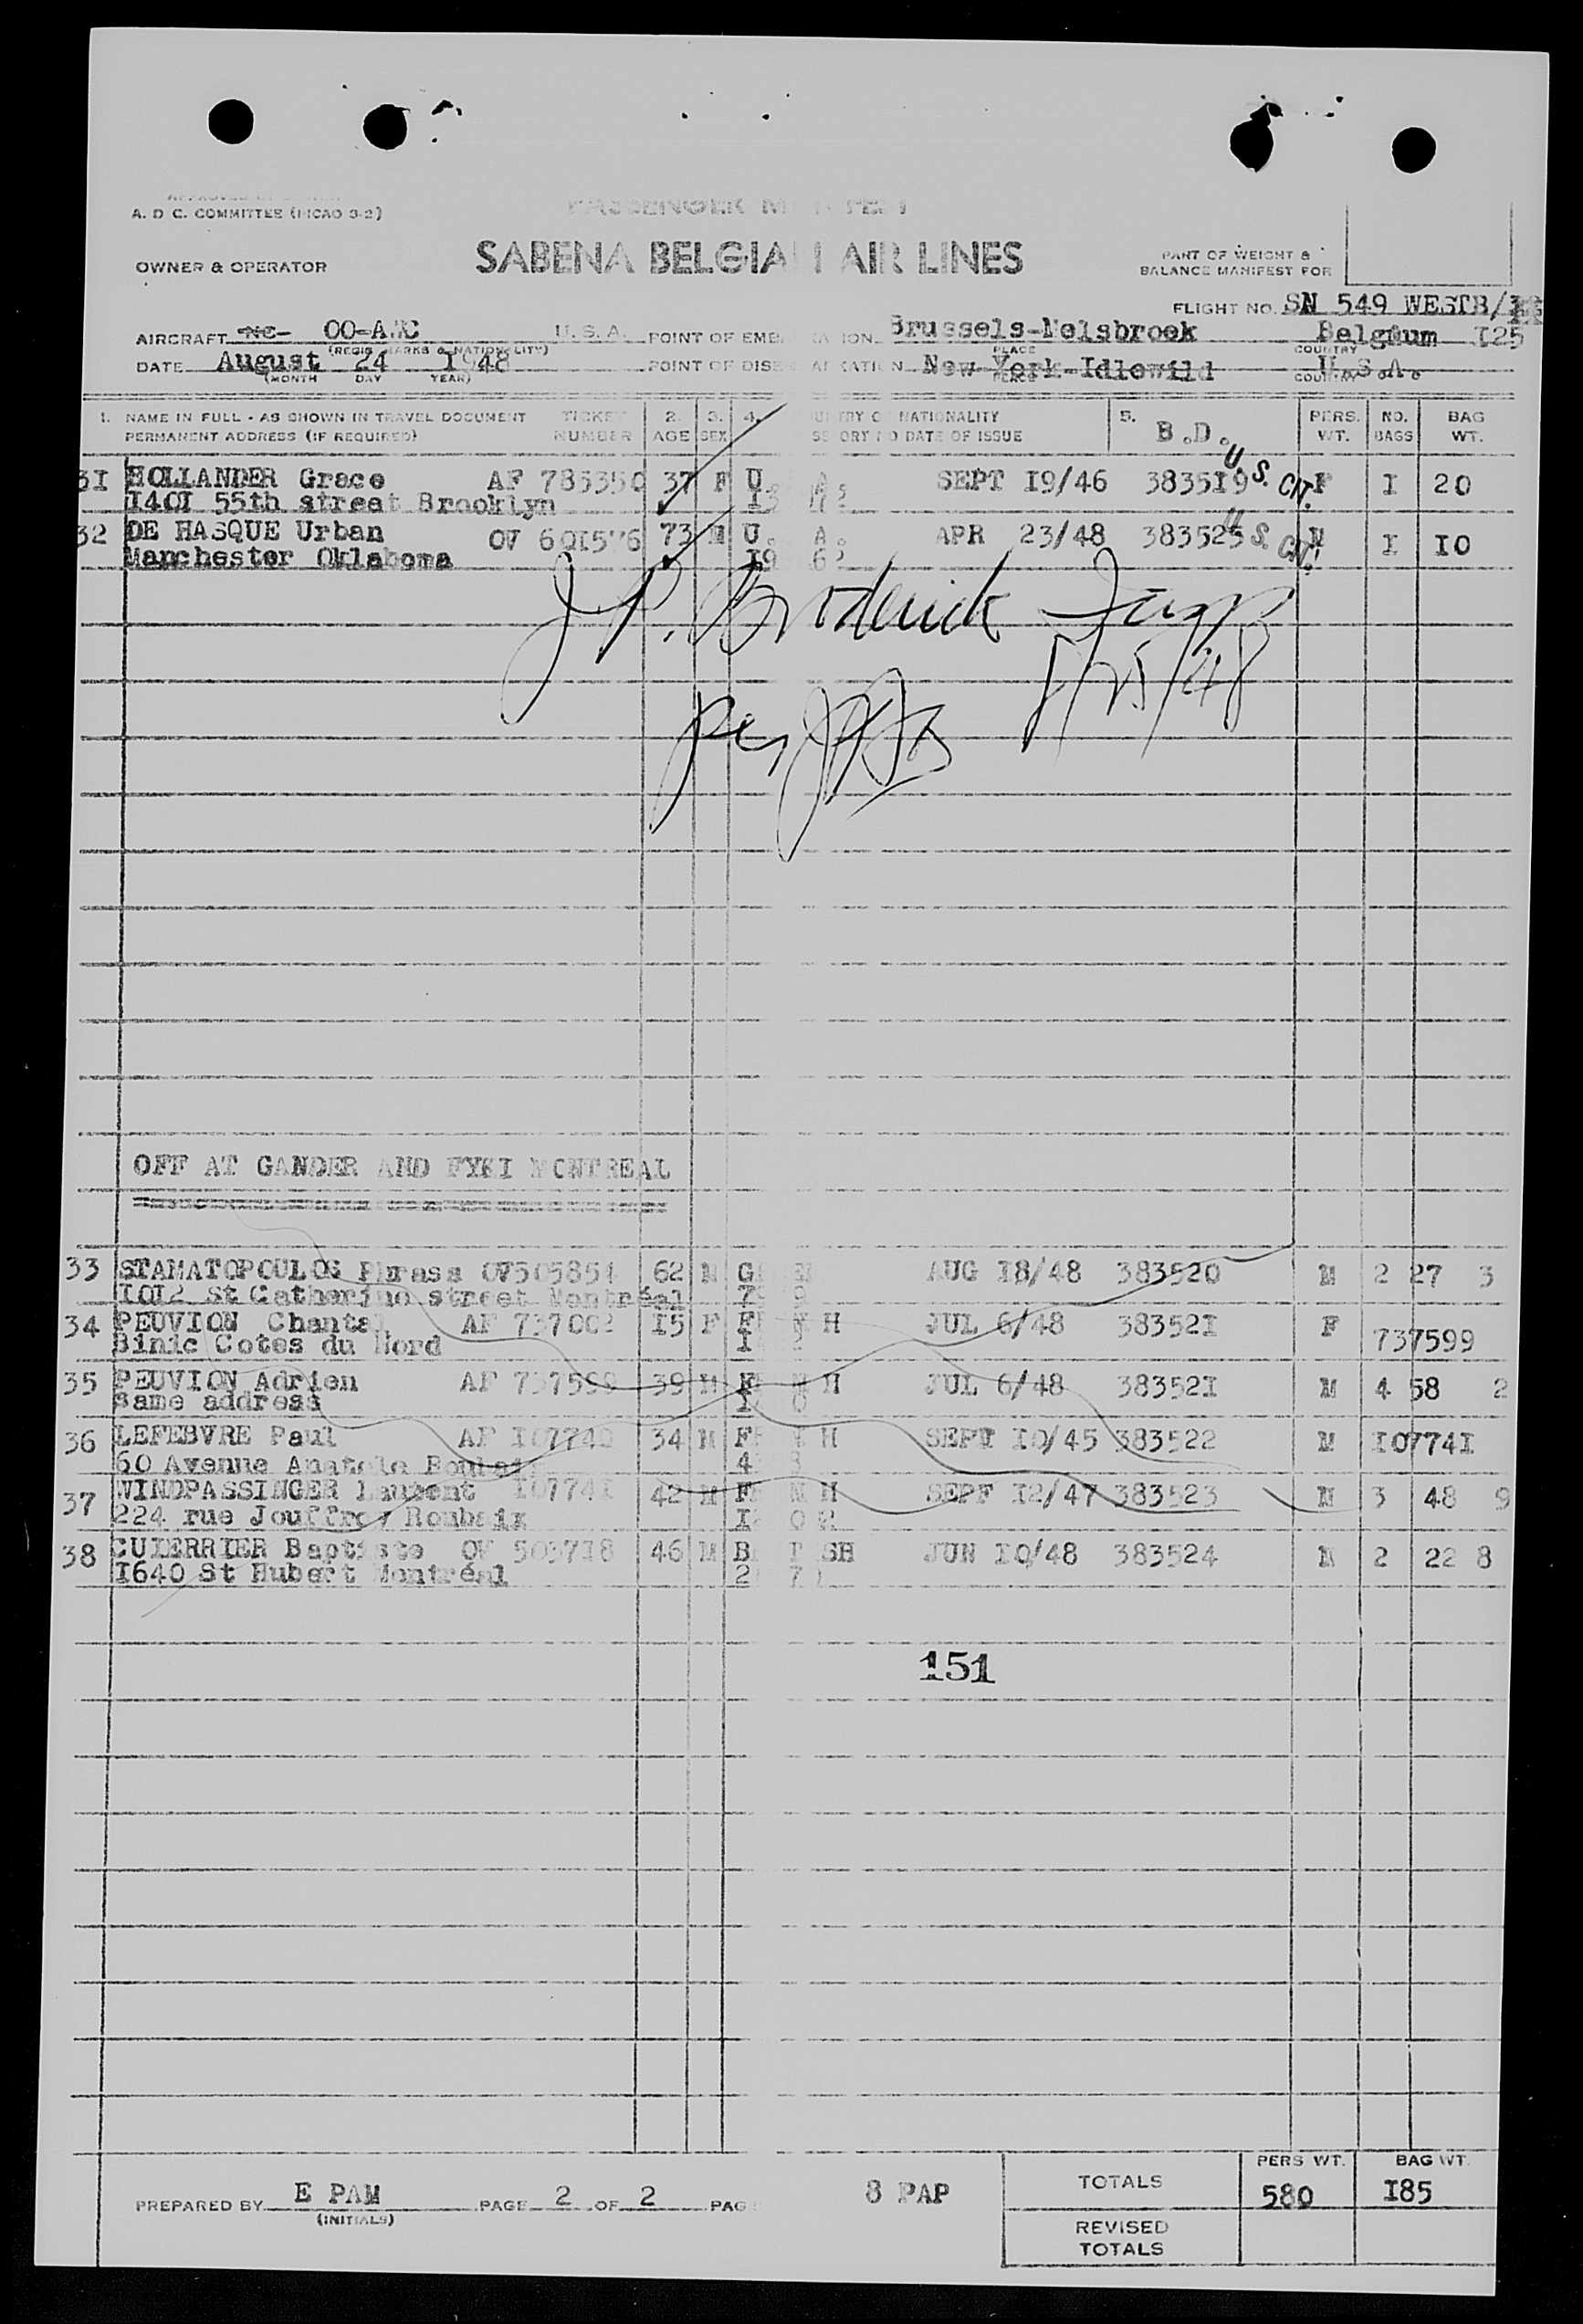 A. D C. COMMITTEE (PICAO 3-2)
SABENA BELGIA AIR LINES
OWNER & OPERATOR
PART OF WEIGHT &
BALANCE MANIFEST FOR
FLIGHT NO. SN 549 WESTB/
AIRCRAFT NC- OO-A C U. S. A. POINT OF EMB ION Brussels-Melsbroek Belgium I25
(REGIS MARKS & NATIONALITY) PLACE COUNTRY
DATE August 24 1948 POINT OF DISE ATION New-York-Idlewild U.S.A.
(MONTH DAY YEAR) PLACE COUNTRY
1. NAME IN FULL - AS SHOWN IN TRAVEL DOCUMENT TICKET 2. 3. 4. NATIONALITY 5. B.D. PERS. NO. BAG
PERMANENT ADDRESS (IF REQUIRED) NUMBER AGE SEX DATE OF ISSUE WT. BAGS WT.
3I HOLLANDER Grace AF 785350 37 F U A SEPT I9/46 3835I9 U.S. CIT. F I 20
I40I 55th street Brooklyn
32 DE HASQUE Urban OV 60I5 6 73 M U. A. APR 23/48 383525 U.S. CIT. M I I0
Manchester Oklahoma
J. P. Broderick
8/25/48
per
OFF AT GANDER AND MONTREAL
33 STAMATOPOULOS OV505854 62 M G AUG I8/48 383520 M 2 27 3
I0I2 St Catherine street Montréal 7
34 PEUVION Chantal AF 737002 I5 F F N H JUL 6/48 38352I F 737599
Binic Cotes du Nord
35 PEUVION Adrien AF 737598 39 M F N H JUL 6/48 38352I M 4 58 2
Same address
36 LEFEBVRE Paul AF I07740 34 M F H SEPT I0/45 383522 M I0774I
60 Avenue Anatole 4
37 WINDPASSINGER Laurent I0774I 42 M F N H SEPT I2/47 383523 M 3 48 9
224 rue Jouffroy Roubaix
38 CUIERRIER Baptiste OV 5037I8 46 M B T SH JUN I0/48 383524 M 2 22 8
I640 St Hubert Montréal 2 7
151
PERS WT. BAG WT.
PREPARED BY E PAM PAGE 2 OF 2 PAG 8 PAP TOTALS 580 I85
(INITIALS)
REVISED
TOTALS